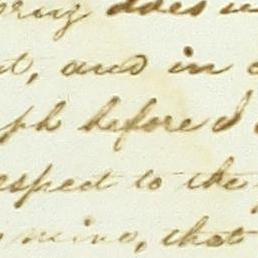 does
and in
before I
respect to the
mine, that